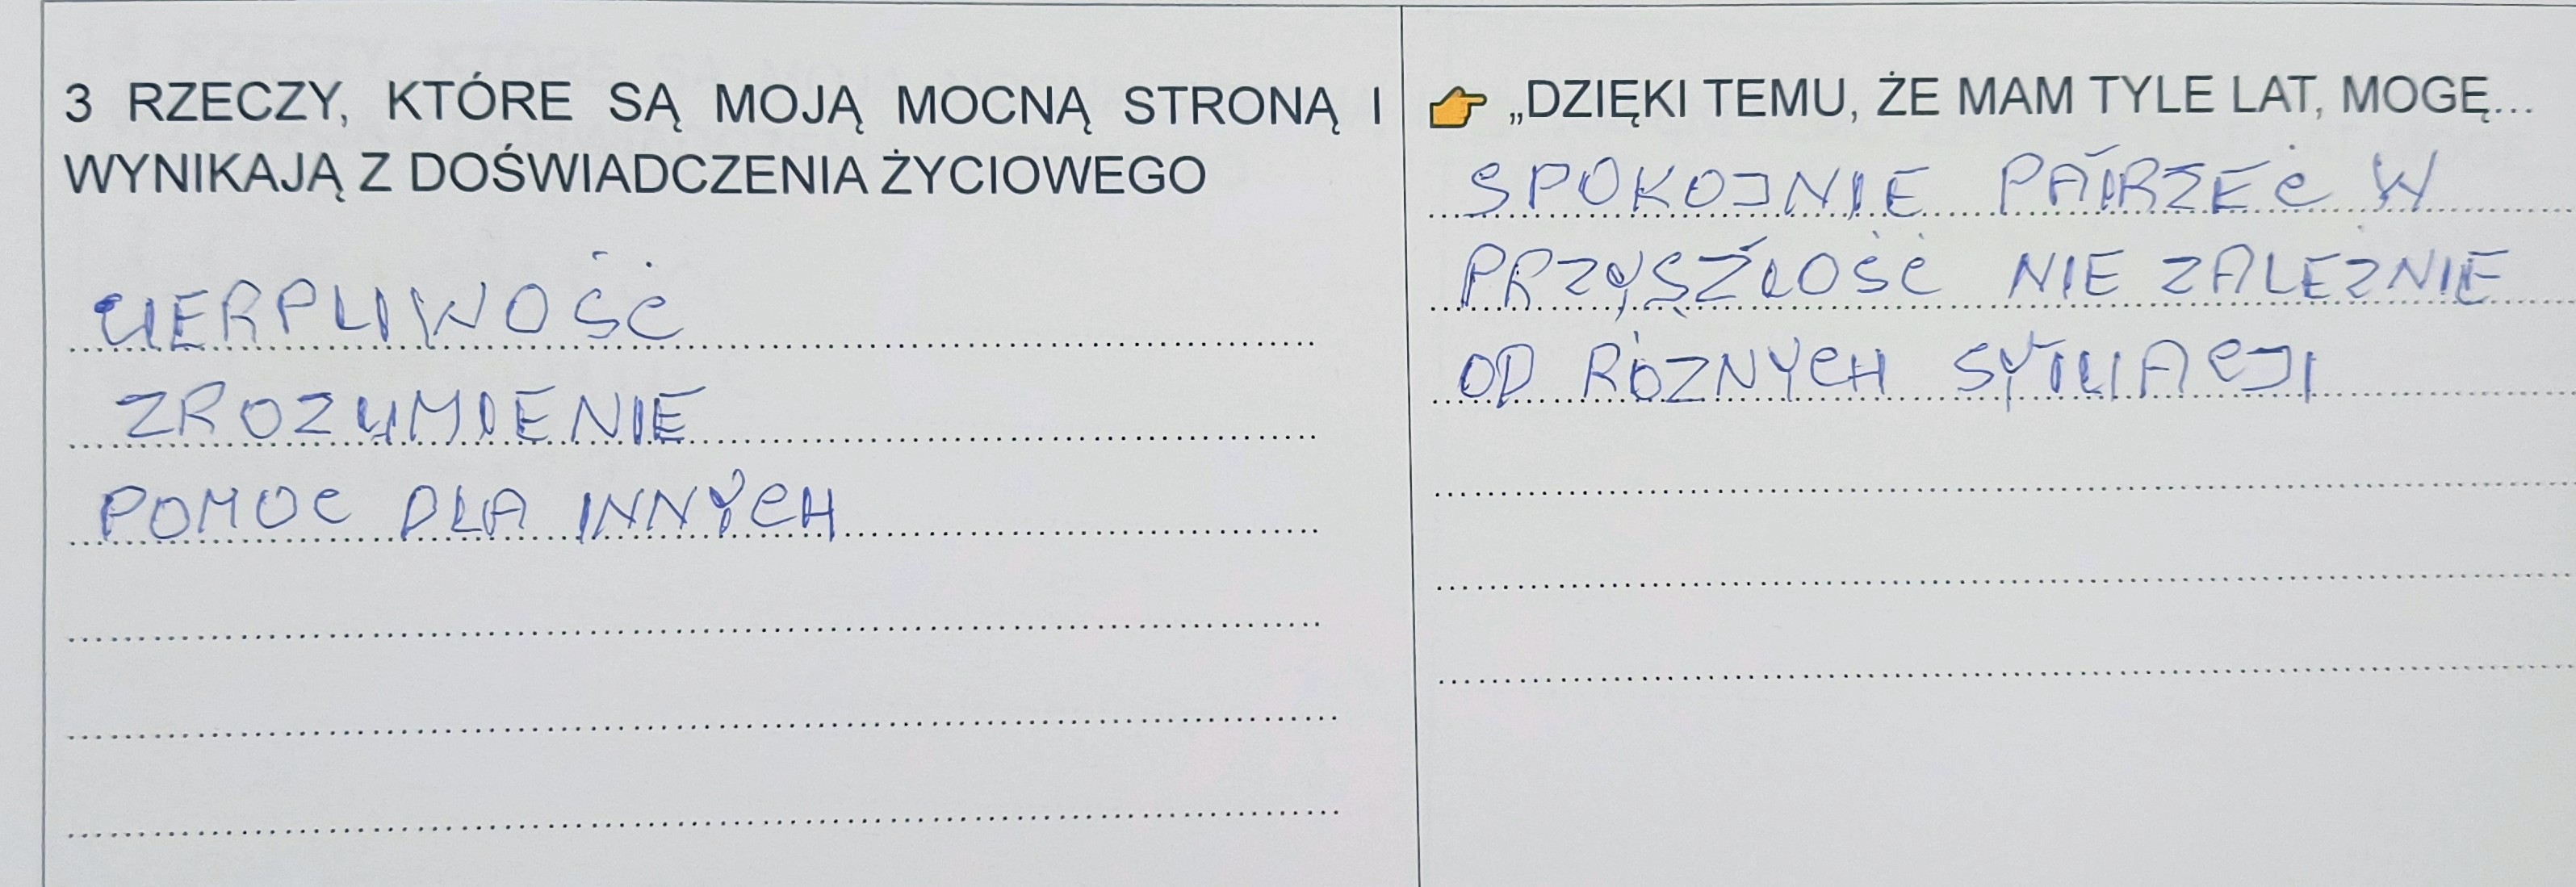 3 RZECZY, KTÓRE SĄ MOJĄ MOCNĄ STRONĄ I
WYNIKAJĄ Z DOŚWIADCZENIA ŻYCIOWEGO
CIERPLIWOŚĆ
ZROZUMIENIE
POMOC DLA INNYCH
👉 „DZIĘKI TEMU, ŻE MAM TYLE LAT, MOGĘ...
SPOKOJNIE PATRZEĆ W
PRZYSZŁOŚĆ NIE ZALEŻNIE
OD RÓŻNYCH SYTUACJI